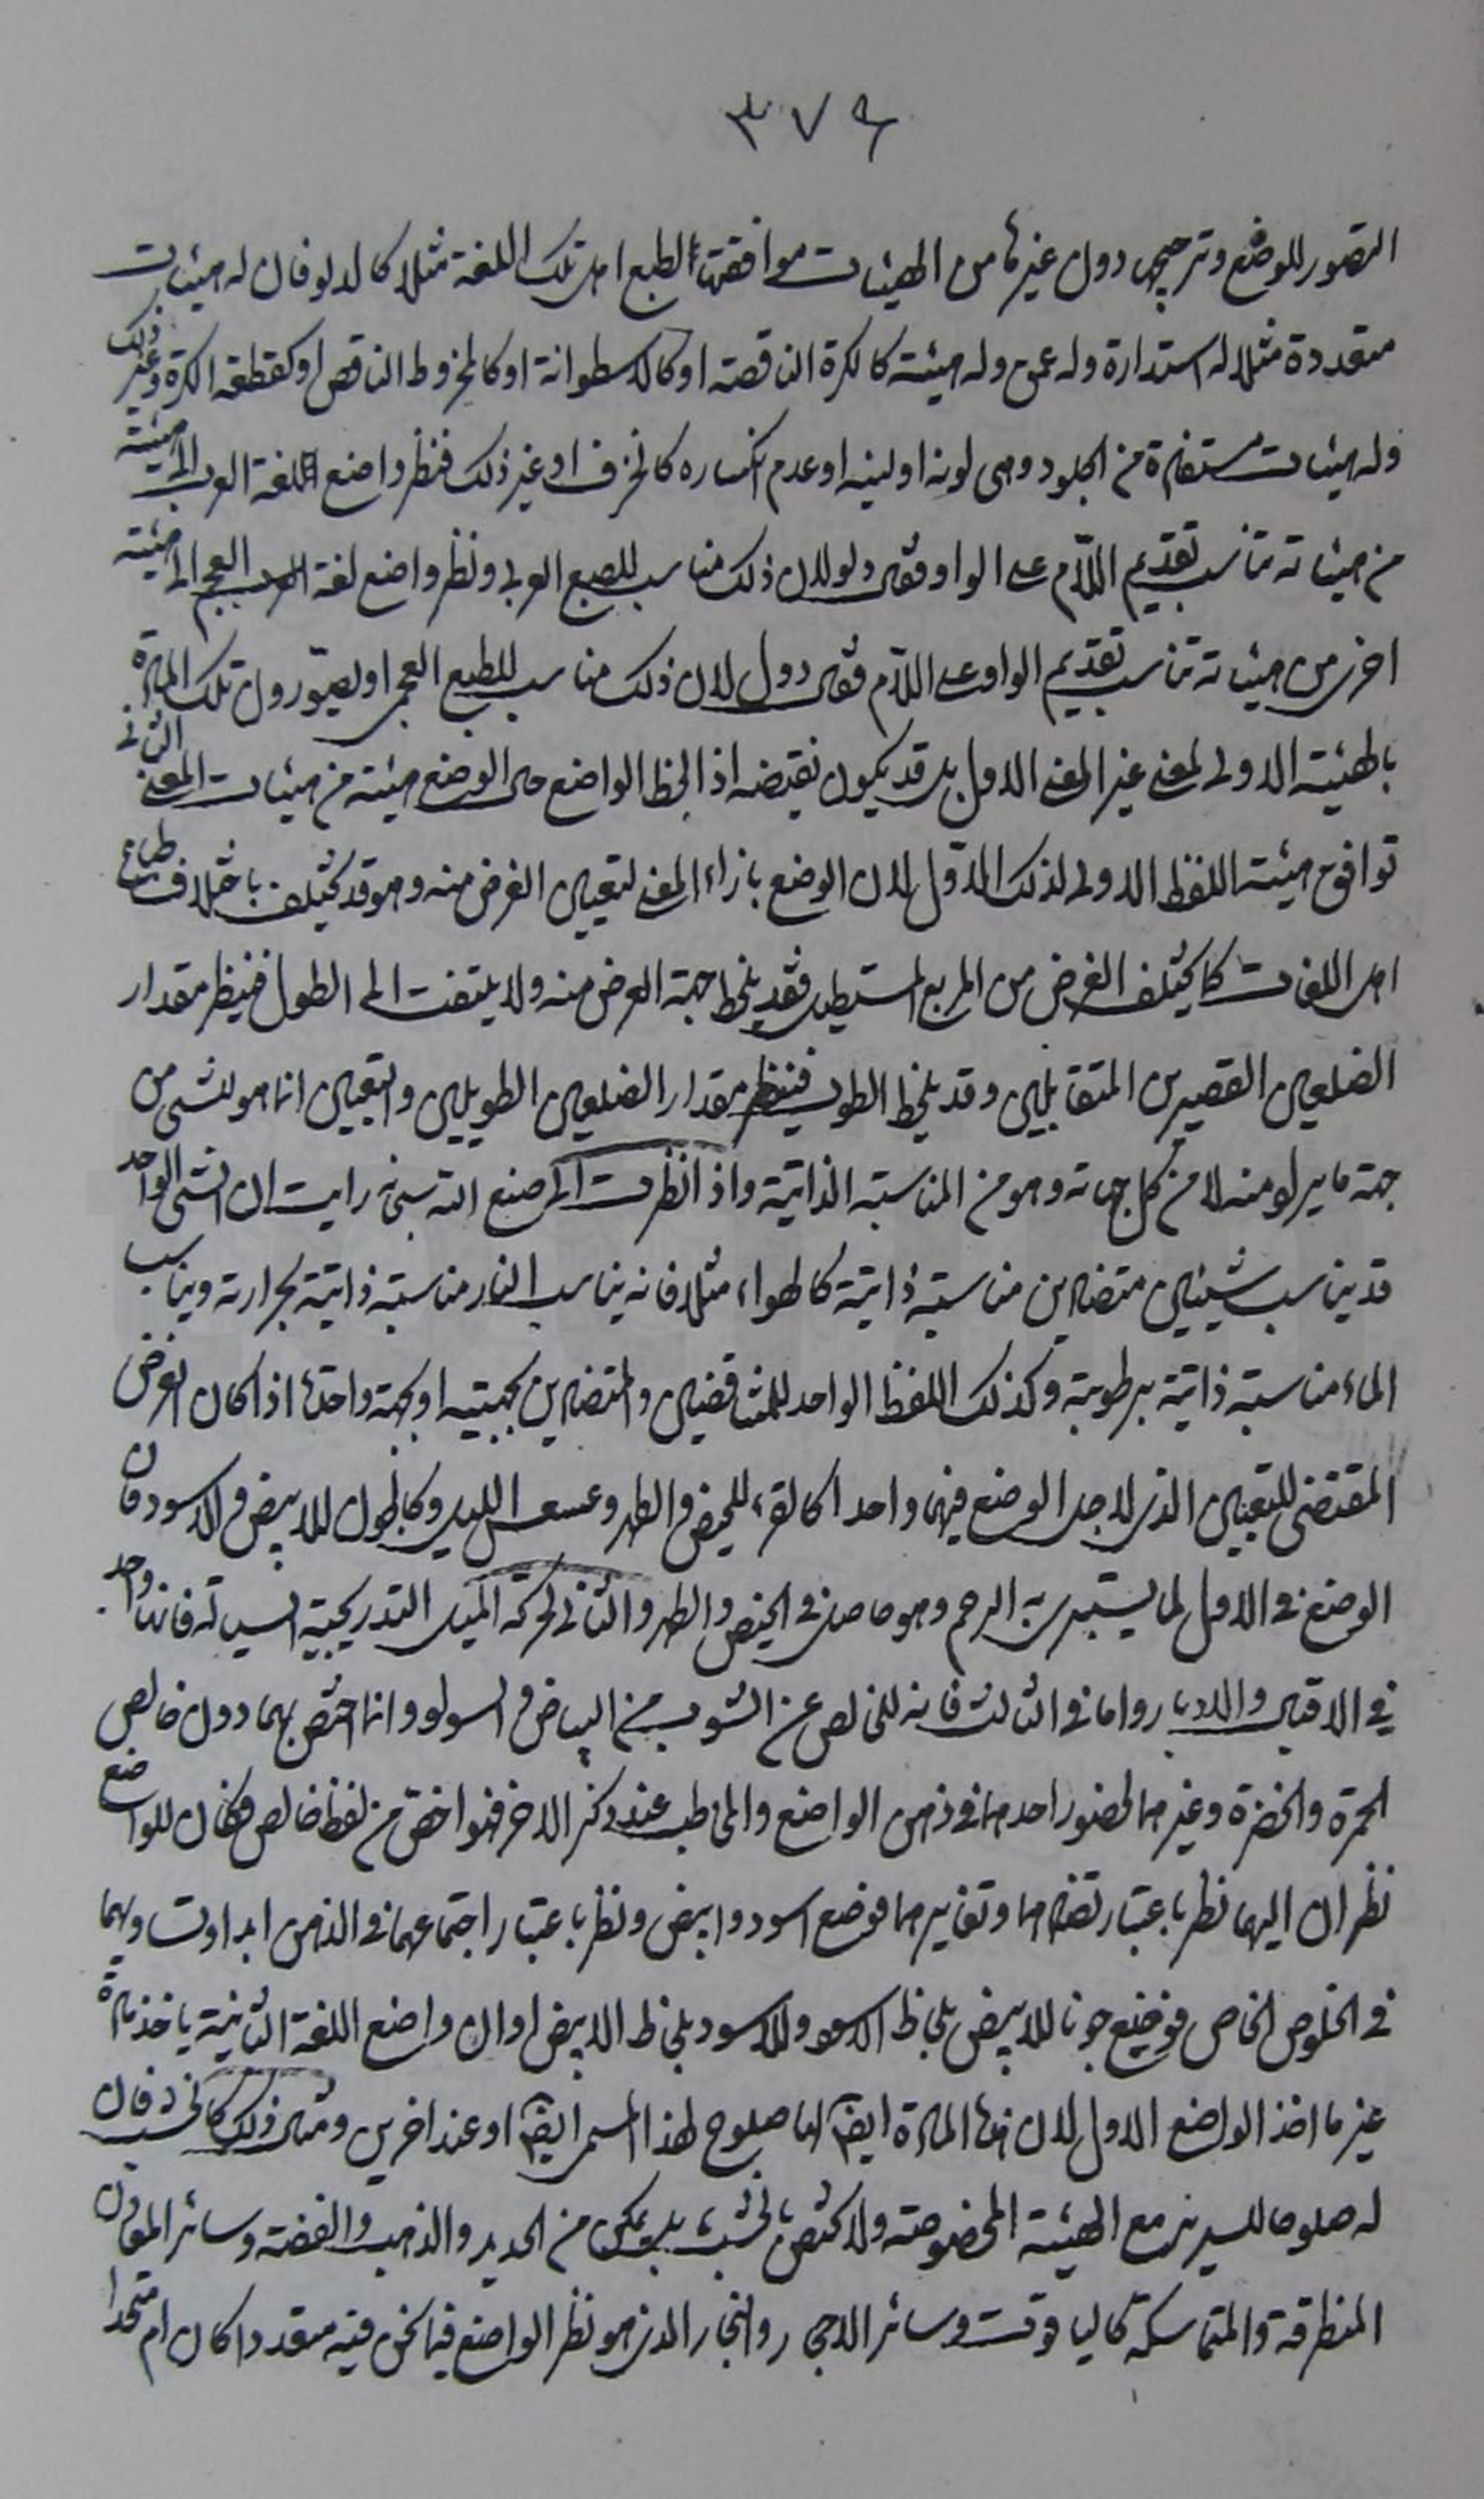 ٣٧٩
التصور للوضع وترجيحه دون غيرها من الهيئات موافقتها لطبع اهل تلك اللغة مثلا كالدلو فان له هيئات
متعددة مثلا له استدارة وله عمق وله هيئة كالكرة الناقصة او كالاسطوانة او كالمخروط الناقص او كقطعة الكرة وغير ذلك
وله هيئات من الجلود وهى لونه او لينه او عدم انكساره كالخزف او غير ذلك فنظر واضع اللغة العرب الى هيئة
من هيئاته تناسب تقديم اللّام على الواو فقال دلو لان ذلك مناسب للطبع العربى ونظر واضع لغة العجم الى هيئة
اخرى من هيئاته تناسب تقديم الواو على اللّام فقال دول لان ذلك مناسب للطبع العجمى او يصوّرون تلك المادة
بالهيئة الاولى لمعنى غير المعنى الاول بل قد يكون نقيضه اذا لحظ الواضع حال الوضع هيئة من هيئات المعنى الثانى
توافق هيئة اللفظ الاولى لذلك الاوّل لان الوضع بازاء المعنى لتعيين الغرض منه وهو قد يختلف باختلاف طباع
اهل اللغات كما يختلف الغرض من المربع المستطيل فقد يلحظ جهة العرض منه ولا يلتفت الى الطول فينظر مقدار
الضلعين القصيرين المتقابلين وقد يلحظ الطول فينظر مقدار الضلعين الطويلين والتعيين انما هو للشىء من
جهة ما يراد منه لا من كل جهاته وهو من المناسبة الذاتية واذا نظرت الى صنع الله سبحانه رايت ان الشىء الواحد
قد يناسب شيئين متضادين مناسبة ذاتية كالهواء مثلا فانه يناسب النار مناسبة ذاتية بحرارته ويناسب
الماء مناسبة ذاتية برطوبته وكذلك اللفظ الواحد للمتناقضين والمتضادين بجهتيه او بجهة واحدة اذا كان الغرض
المقتضى للتعيين الذى لاجل الوضع فيهما واحدا كالقرء للحيض والطهر وعسعس الليل وكالجون للابيض والاسود فان
الوضع فى الاول لما يستبرى به الرحم وهو حاصل فى الحيض والطهر والثانى لحركة الليل التدريجية السيالة فانها واحد
فى الاقبال والادبار واما فى الثالث فانه للخالص عن الشوب من البياض والسواد وانما اختص بهما دون خالص
الحمرة والخضرة وغيرهما لحضور احدهما فى ذهن الواضع والمخاطب عند ذكر الاخر فهو اخصّ من لفظ خالص فكان للواضع
نظران اليهما نظر باعتبار تضادهما وتغايرهما فوضع اسود وابيض ونظر باعتبار اجتماعهما فى الذهن ابدا وتساويهما
فى الخلوص الخاص فوضع جونا للابيض بلحاظ الاسود وللاسود بلحاظ الابيض او ان واضع اللغة الثانية ياخذ مادة
غير ما اخذ الواضع الاول لان هذه المادة ايضا لها صلوح لهذا المسمى ايضا او عند اخرين ومثال ذلك كالخشب فان
له صلوحا للسرير مع الهيئة المخصوصة ولا تختص بالخشب بل يمكن من الحديد والذهب والفضة وسائر المعادن
المنطرقة والمتماسكة كالياقوت وسائر الاحجار والنجار الذى هو نظر الواضع فيما نحن فيه متعددا كان ام متحدا